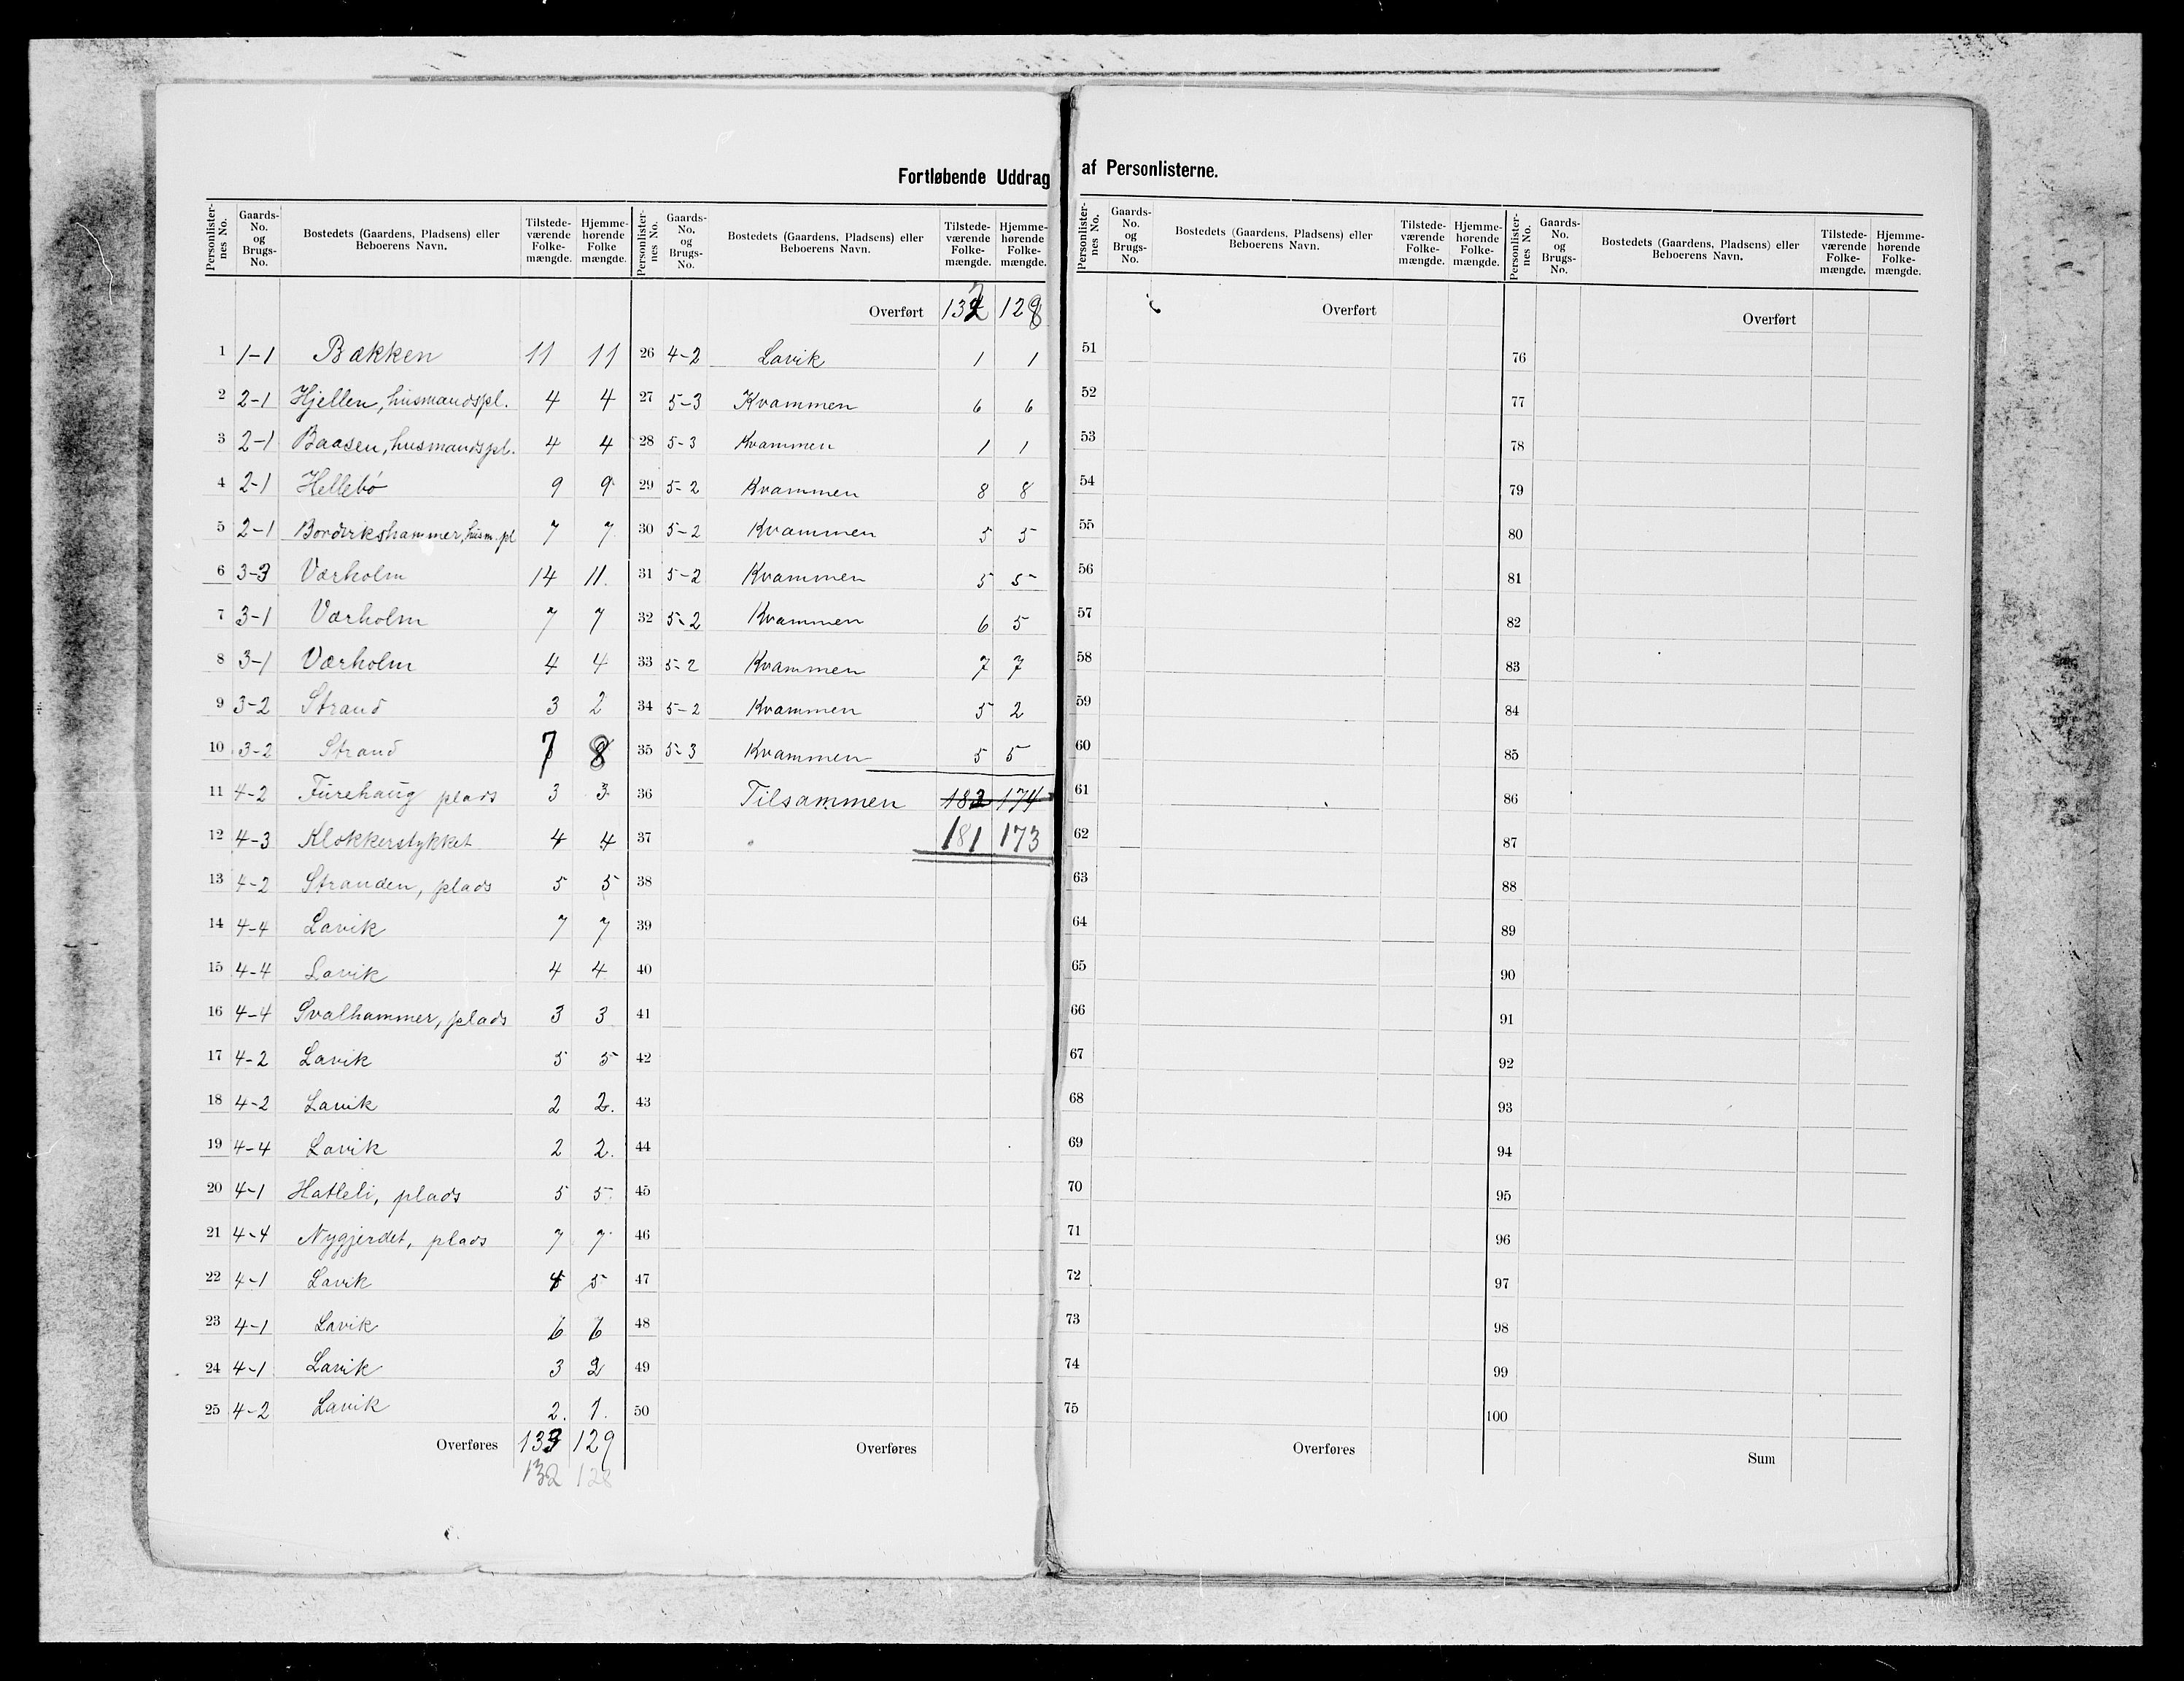 Fortløbende Uddrag af Personlisterne.
Personlisternes No. Gaards-No. og Brugs-No. Bostedets (Gaardens, Pladsens) eller Beboerens Navn. Tilstedeværende Folkemængde. Hjemmehørende Folkemængde.
1 1-1 Bækken 11 11
2 2-1 Hjellen, husmandspl. 4 4
3 2-1 Baasen, husmandspl. 4 4
4 2-1 Hellebø 9 9
5 2-1 Bordvikshammer, husm.pl 7 7
6 3-3 Værholm 14 11.
7 3-1 Værholm 7 7
8 3-1 Værholm 4 4
9 3-2 Strand 3 2
10 3-2 Strand 7 8
11 4-2 Furehaug plads 3 3
12 4-3 Klokkerstykket 4 4
13 4-2 Stranden, plads 5 5
14 4-4 Lavik 7 7
15 4-4 Lavik 4 4
16 4-4 Svalhammer, plads 3 3
17 4-2 Lavik 5 5
18 4-2 Lavik 2 2.
19 4-4 Lavik 2 2.
20 4-1 Hatleli, plads 5 5
21 4-4 Nygjerdet, plads 7 7
22 4-1 Lavik 4 5
23 4-1 Lavik 6 6
24 4-1 Lavik 3 2
25 4-2 Lavik 2. 1.
Overføres 133 129
132 128
Personlisternes No. Gaards-No. og Brugs-No. Bostedets (Gaardens, Pladsens) eller Beboerens Navn. Tilstedeværende Folkemængde. Hjemmehørende Folkemængde.
Overført 132 128
26 4-2 Lavik 1 1
27 5-3 Kvammen 6 6
28 5-3 Kvammen 1 1
29 5-2 Kvammen 8 8
30 5-2 Kvammen 5 5
31 5-2 Kvammen 5 5
32 5-2 Kvammen 6 5
33 5-2 Kvammen 7 7
34 5-2 Kvammen 5 2
35 5-3 Kvammen 5 5
36 Tilsammen 182 174
37 181 173
38
39
40
41
42
43
44
45
46
47
48
49
50
Overføres
Personlisternes No. Gaards-No. og Brugs-No. Bostedets (Gaardens, Pladsens) eller Beboerens Navn. Tilstedeværende Folkemængde. Hjemmehørende Folkemængde.
Overført
51
52
53
54
55
56
57
58
59
60
61
62
63
64
65
66
67
68
69
70
71
72
73
74
75
Overføres
Personlisternes No. Gaards-No. og Brugs-No. Bostedets (Gaardens, Pladsens) eller Beboerens Navn. Tilstedeværende Folkemængde. Hjemmehørende Folkemængde.
Overført
76
77
78
79
80
81
82
83
84
85
86
87
88
89
90
91
92
93
94
95
96
97
98
99
100
Sum